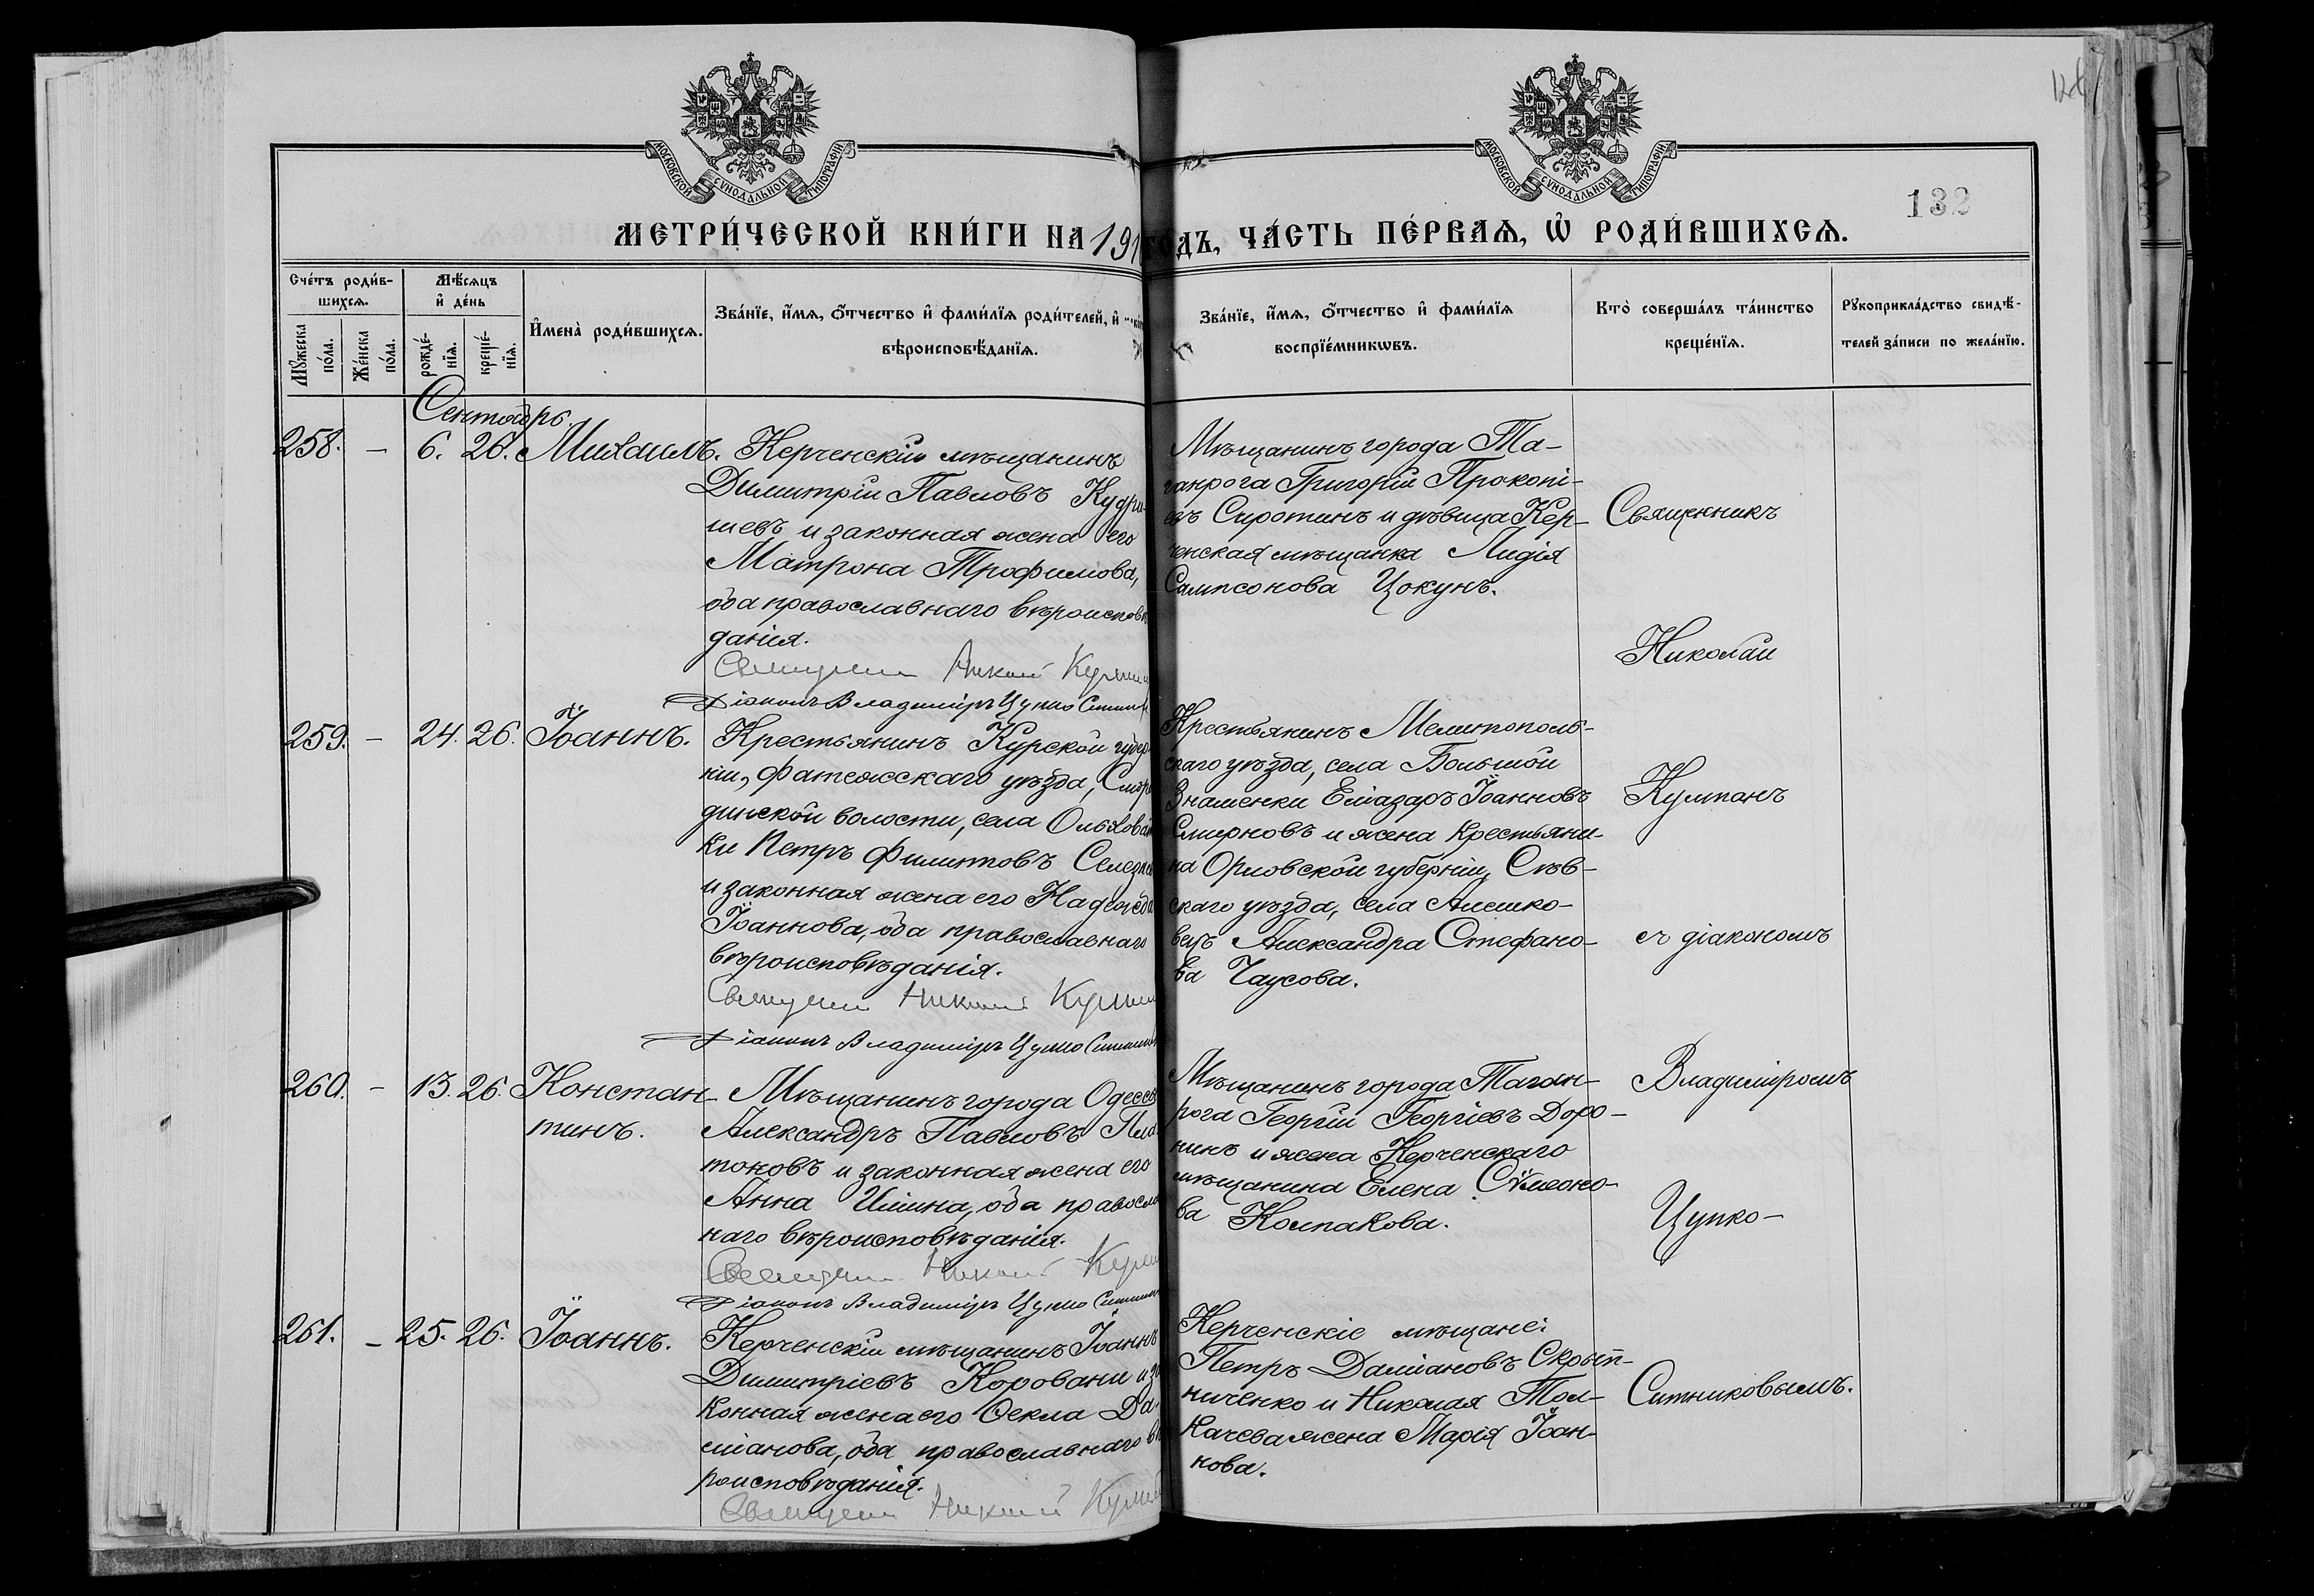 МОСКОВСКОЙ СУНОДАЛЬНОЙ ТИПОГРАФІИ
МОСКОВСКОЙ СУНОДАЛЬНОЙ ТИПОГРАФІИ
132
МЕТРИ́ЧЕСКОЙ КНИ́ГИ НА 191 ГОДЪ, ЧА́СТЬ ПЕ́РВАѦ, Ѡ РОДИ́ВШИХСѦ.
Сче́тъ роди́в-
шихсѧ.
Мꙋ́жеска
по́ла.
Же́нска
по́ла.
Мѣ́сѧцъ
и҆ де́нь
рожде́-
нїѧ.
креще́-
нїѧ.
И҆мена̀ роди́вшихсѧ.
Зва́нїе, и҆́мѧ, ѻ҆́тчество и҆ фами́лїѧ роди́телей, и҆
вѣроисповѣ́данїѧ.
Зва́нїе, и҆́мѧ, ѻ҆́тчество и҆ фами́лїѧ
воспрїе́мникѡвъ.
Кто̀ соверша́лъ та́инство
креще́нїѧ.
Рꙋкоприкла́дство свидѣ́-
телей за́писи по жела́нїю.
Сентябрь.
258. — 6. 26. Михаилъ.
Керченскій мѣщанинъ
Димитрій Павловъ Кудри-
шевъ и законная жена его
Матрона Трофимова,
оба православнаго вѣроисповѣ
данія.
Священник Николай Кулпан
Діаконъ Владиміръ Цупко Ситник
Мѣщанинъ города Та-
ганрога Григорій Прокопі-
евъ Сиротинъ и дѣвица Кер-
ченская мѣщанка Лидія
Сампсонова Цокунъ.
259. — 24. 26. Іоаннъ.
Крестьянинъ Курской губер
ніи, Фатежскаго уѣзда, Смор
динской волости, села Ольхова
ки Петръ Филиппов Селезне
и законная жена его Надежда
Іоаннова, оба православнаго
вѣроисповѣданія.
Священник Николай Кулпан
Діаконъ Владиміръ Цупко Ситник
Крестьянинъ Мелитополь-
скаго уѣзда, села Большой
Знаменки Елїазаръ Іоанновъ
Смирновъ и жена крестьяни-
на Орловской губерніи, Сѣв-
скаго уѣзда, села Алешко-
вецъ Александра Стефано-
ва Чаусова.
260. — 13. 26. Констан-
тинъ.
Мѣщанинъ города Одессы
Александръ Павловъ Пла
тоновъ и законная жена его
Анна Ильина, оба правосла
наго вѣроисповѣданія.
Священник Николай Кулпан
Діаконъ Владиміръ Цупко Ситник
Мѣщанинъ города Таган-
рога Георгій Георгіевъ Доро-
нинъ и жена Керченскаго
мѣщанина Елена Сѵмеоно-
ва Колпакова.
261. — 25. 26. Іоаннъ.
Керченскій мѣщанинъ Іоаннъ
Димитріевъ Коровани и за
конная жена его Ѳекла Да-
міанова, оба православнаго вѣ
роисповѣданія.
Священник Николай Кулпан
Керченскіе мѣщане:
Петръ Даміановъ Скрып-
ниченко и Николая Тол-
качева жена Марія Іоан-
нова.
Священникъ
Николай
Кулпанъ
съ діакономъ
Владиміромъ
Цупко-
Ситниковымъ.